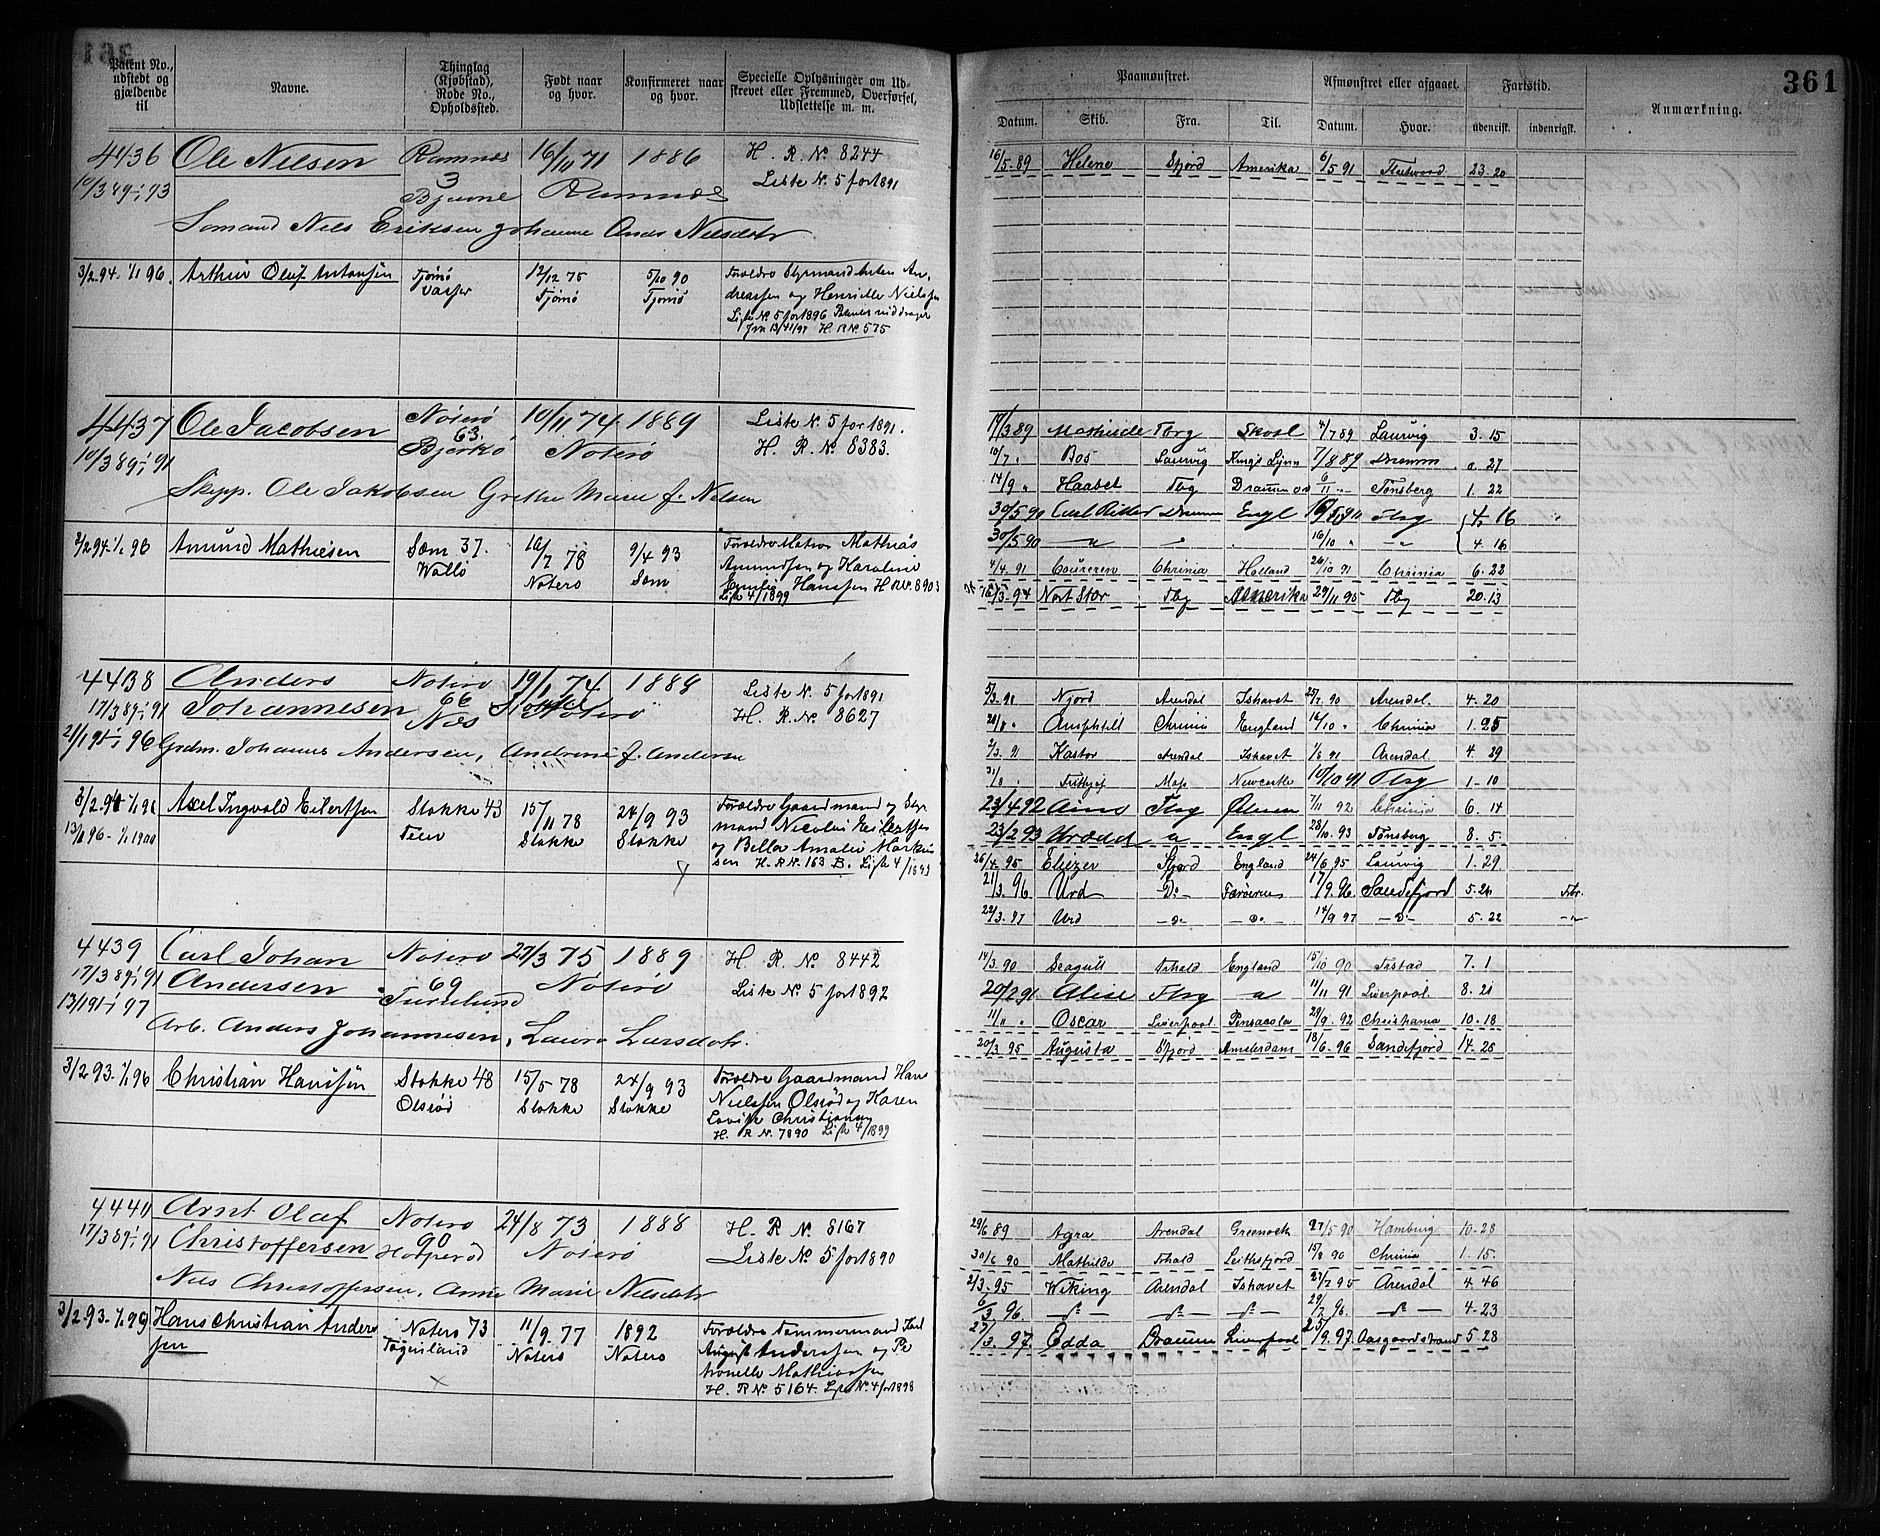 361
Patent No., udstedt og gjældende til
Navne.
Thinglag (Kjøbstad), Rode No., Opholdssted.
Født naar og hvor.
Konfirmeret naar og hvor.
Specielle Oplysninger om Udskrevet eller Fremmed, Overførsel, Udslettelse m. m.
Paamønstret.
Afmønstret eller afgaaet.
Fartstid.
Anmærkning.
Datum. Skib. Fra. Til. Datum. Hvor. udenrigsk. indenrigsk.
4436 Ole Nilsen Ramnæs 16/11 71 1886 H. R. No 8244
3 Ramnæs Liste No. 5 for 1891
Nils Eriksen Johanne
16/5-89 Helene Sfjord Amerika 6/5 91 Fleetwood 23-20
3/2.94. 1/1 96. Arthur Oluf Antonsen Tjømø 12/12 75 5/10 90 Forældre Styrmand Anton An-
Tjømø Tjømø dreassen og Henriette Nielsen
Liste No. 5 for 1896
H. R No. 575
4437 Ole Jacobsen Noterø 10/11 74. 1889 Liste No. 5 for 1891.
63. Bjerkø Noterø H. R. No 8383.
Skipp. Ole Jakobsen Grethe Marie f. Nilsen
17/3 89 Mathilde Tbrg 4/7 89 Laurvig 3-15
10/7 " Bos Laurvig Kings Lynn 7/8 89 Dramm 0-27
14/9 " Haabet Tbg Drammen 6/11 " Tønsberg 1-22
30/5 90 Carl Ritter Dramm Engl Tbrg 4-16
30/5 90 16/10 " 4-16
4/4. 91 Chrinia Holland 26/10 91 Chrinia 6-22
94 Nort Star Tbg Amerika 29/11 95 Tbg 20-13
3/2 94. 1/1 96 Amund Mathiesen Sem 37. 16/7 78 9/4 93 Forældre Matros Mathias
Vallø Noterø Sem Amundsen og Karoline
Emilie Hanssen H R No. 8903
Liste 4/1899
4438 Anders Noterø 19/1 74 1889 Liste No. 5 for 1891
17/3 89-1/1 91 Johannesen 66 Næs Noterø H. R. No. 8627
Grdm. Johannes Andersen, Andrine f. Andersen
5/3. 91 Njord Arendal Ishavet 25/7. 90 Arendal. 4-20
Chrinia England 14/10 " Chrinia 1-25
2/3. 91 Kastor Arendal Ishavet 1/6 91 Arendal 4-29
31/8 Frithjof Moss Newcastle 10/10 91 Tbrg 1-10
23/4 92 Tbrg 7/11 92 Chrinia 6-14
23/2 93 Engl 28/10. 93 Tønsberg 8-5
26/4. 95 Eliezer Sfjord England 24/6 95 Laurvig 1-29
21/3. 96 Urd -Do- Færøerne 17/9. 96 Sandefjord 5-26 Fbr.
22/3. 97 Urd -Do- -Do- 14/9 97 -Do- 5-22 -"-
3/2.94 1/1 96 Axel Ingvald Eilertsen Stokke 43 15/11 78 24/9 93 Forældre Gaardmand og Styr
13/1 96 - 1/1 1900 Stokke Stokke mand Nicolai Eilertsen
og Amalie Markus
sen H. R No. 163 B. Liste 4/1899
4439 Carl Johan Noterø 27/3 75 1889 H. R. No. 8442
17/3 89-1/1 91 Andersen 69 Noterø Liste No. 5 for 1892
Arb. Anders Johannesen, Laura Larsdotr.
14/3. 90 Seagull Frhald England 15/10 90 7. 1
20/2 91 Alice Tbrg " 11/11 91 Liverpool. 8-21
11/11 " Oscar Liverpool Pensacola 29/9. 92 Christiania 10-18
20/3. 95 Augusta Sfjord Amsterdam 18/6-96 Sandefjord 14-25
3/2 93. 1/1 96 Christian Hanssen Stokke 48 15/5 78 24/9 93 Forældre Gaardmand Hans
Olsrød Stokke Stokke Nielssen Olsrød og Karen
Lovise Christiansen
H. R No. 7890 Liste 4/1899
4440 Arnt Olaf Noterø 24/8 73 1888 H. R No. 8167
17/3 89-1/1 91 Christoffersen 90 Noterø Liste No. 5 for 1890
Nils Christoffersen, Anne Marie Nilsdotr
29/6 89 Agra Arendal Greenock 27/5 90 Hamburg 10-28
30/6 90 Mathilde Frhald Leithsfjord 15/8 90 Chrinia 1-15.
2/3. 95 Wiking Arendal Ishavet 27/7 95 Arendal 4-46
6/3 96. 29/7 96. 4-23
3. 97. Edda Dramm Liverpool 25/9. 97. Aasgaardstrand 5-28
3/2.93. 1/1 99 Hans Christian Anders Noterø 73 11/9. 77 1892 Forældre Tømmermand Karl
sen Noterø Noterø August Anderssen og Pe
tronelle Mathiassen
H. R No. 5164. Liste No. 4 for 1898